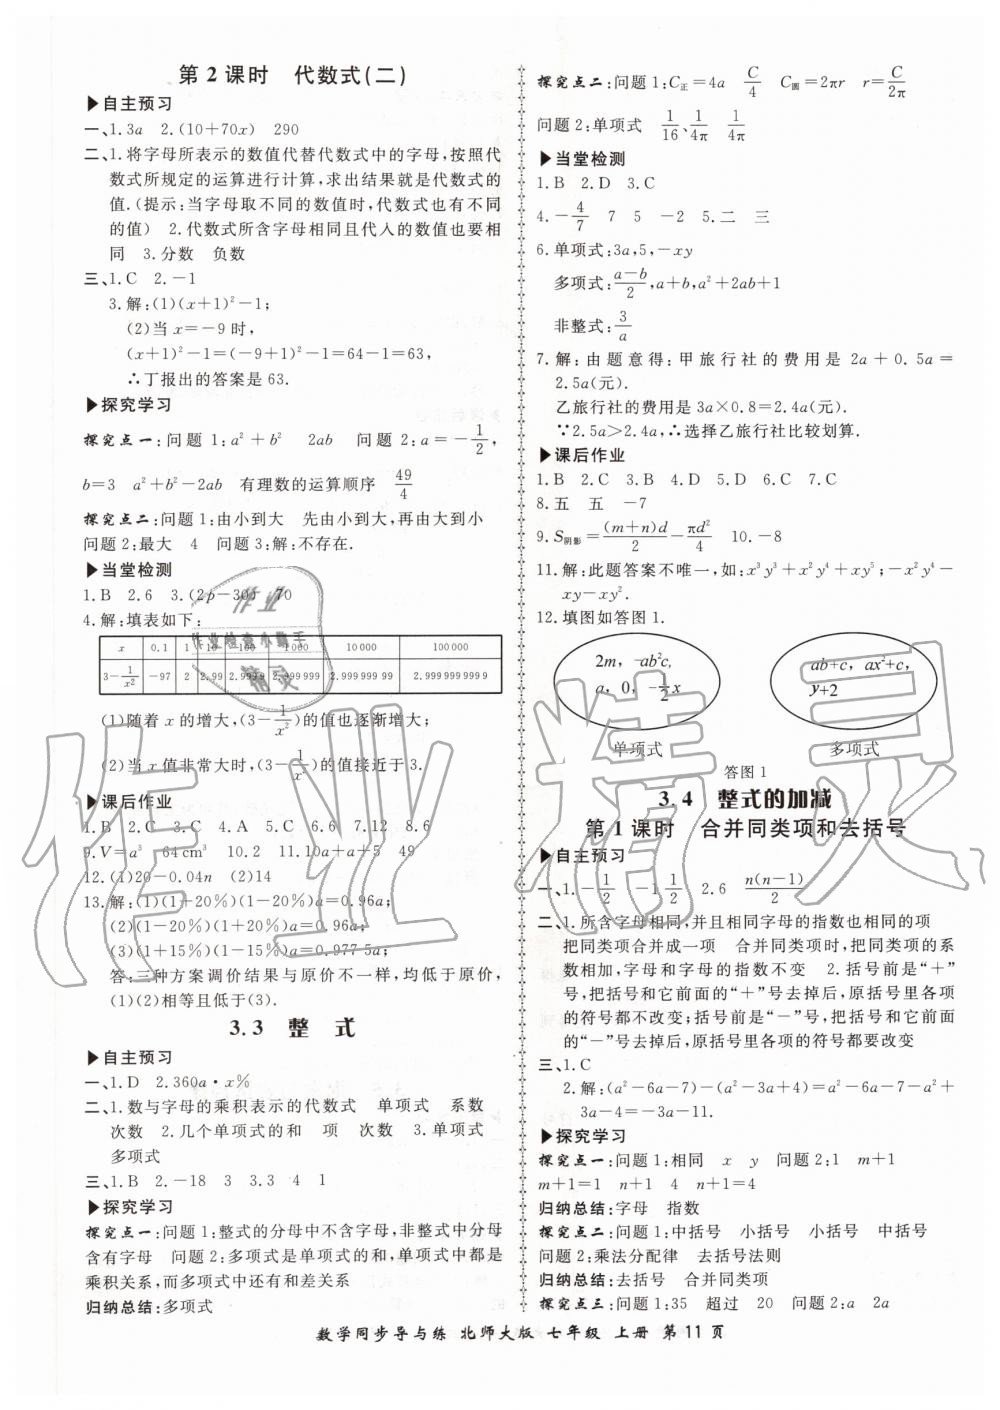 第2课时　代数式(二)
▶自主预习
一、1.3a　2.(10+70x)　290
二、1.将字母所表示的数值代替代数式中的字母,按照代
数式所规定的运算进行计算,求出结果就是代数式的
值.(提示:当字母取不同的数值时,代数式也有不同
的值)　2.代数式所含字母相同且代入的数值也要相
同　3.分数　负数
三、1.C　2.－1
3.解:(1)(x+1)²－1;
(2)当 x=－9 时,
(x+1)²－1=(－9+1)²－1=64－1=63,
∴丁报出的答案是 63.
▶探究学习
探究点一:问题 1:a²+b²　2ab　问题 2:a=－1/2,
b=3　a²+b²－2ab　有理数的运算顺序　49/4
探究点二:问题 1:由小到大　先由小到大,再由大到小
问题 2:最大　4　问题 3:解:不存在.
▶当堂检测
1.B　2.6　3.(2p－30)　70
4.解:填表如下:
x　0.1　1　10　100　1 000　10 000　100 000
3－1/x²　－97　2　2.99　2.999 9　2.999 999　2.999 999 99　2.999 999 999 9
(1)随着 x 的增大,(3－1/x²)的值也逐渐增大;
(2)当 x 值非常大时,(3－1/x²)的值接近于 3.
▶课后作业
1.B　2.C　3.C　4.A　5.C　6.6　7.12　8.6
9.V=a³　64 cm³　10.2　11.10a+a+5　49
12.(1)20－0.04n　(2)14
13.解:(1)(1+20%)(1－20%)a=0.96a;
(2)(1－20%)(1+20%)a=0.96a;
(3)(1+15%)(1－15%)a=0.977 5a;
答:三种方案调价结果与原价不一样,均低于原价,
(1)(2)相等且低于(3).
3.3　整　式
▶自主预习
一、1.D　2.360a·x%
二、1.数与字母的乘积表示的代数式　单项式　系数
次数　2.几个单项式的和　项　次数　3.单项式
多项式
三、1.B　2.－18　3　3.3　4　1
▶探究学习
探究点一:问题 1:整式的分母中不含字母,非整式中分母
含有字母　问题 2:多项式是单项式的和,单项式中都是
乘积关系,而多项式中还有和差关系
归纳总结:多项式
探究点二:问题 1:C正=4a　C/4　C圆=2πr　r=C/2π
问题 2:单项式　1/16、1/4π　1/4π
▶当堂检测
1.B　2.D　3.C
4.－4/7　7　5　－2　5.二　三
6.单项式:3a,5,－xy
多项式:(a－b)/2,a+b,a²+2ab+1
非整式:3/a
7.解:由题意得:甲旅行社的费用是 2a+0.5a=
2.5a(元).
乙旅行社的费用是 3a×0.8=2.4a(元).
∵2.5a>2.4a,∴选择乙旅行社比较划算.
▶课后作业
1.B　2.C　3.B　4.D　5.D　6.C　7.C
8.五　五　－7
9.S阴影=(m+n)d/2－πd²/4　10.－8
11.解:此题答案不唯一,如:x³y³+x²y⁴+xy⁵;－x²y－
xy－xy².
12.填图如答图 1.
2m, －ab²c,
a, 0, －1/2x
单项式
ab+c, ax²+c,
y+2
多项式
答图 1
3.4　整式的加减
第1课时　合并同类项和去括号
▶自主预习
一、1.－1/2　－1 1/2　2.6　n(n－1)/2
二、1.所含字母相同,并且相同字母的指数也相同的项
把同类项合并成一项　合并同类项时,把同类项的系
数相加,字母和字母的指数不变　2.括号前是“+”
号,把括号和它前面的“+”号去掉后,原括号里各项
的符号都不改变;括号前是“－”号,把括号和它前面
的“－”号去掉后,原括号里各项的符号都要改变
三、1.C
2.解:(a²－6a－7)－(a²－3a+4)=a²－6a－7－a²+
3a－4=－3a－11.
▶探究学习
探究点一:问题 1:相同　x　y　问题 2:1　m+1
m+1=1　n+1　4　n+1=4
归纳总结:字母　指数
探究点二:问题 1:中括号　小括号　小括号　中括号
问题 2:乘法分配律　去括号法则
归纳总结:去括号　合并同类项
探究点三:问题 1:35　超过　20　问题 2:a　2a
数学同步导与练　北师大版　七年级　上册　第11页
作业
作业检查小助手
精灵
作业精灵